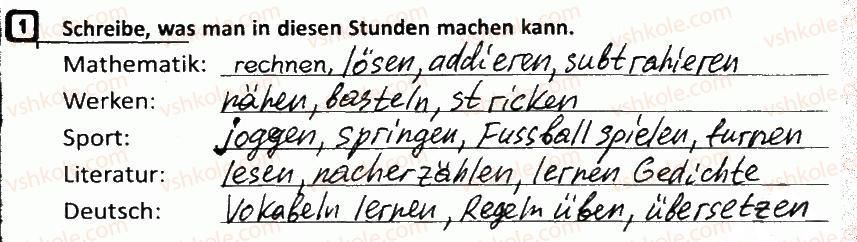 1 Schreibe, was man in diesen Stunden machen kann.
Mathematik: rechnen, lösen, addieren, subtrahieren
Werken: nähen, basteln, stricken
Sport: joggen, springen, Fussball spielen, turnen
Literatur: lesen, nacherzählen, lernen Gedichte
Deutsch: Vokabeln lernen, Regeln üben, übersetzen